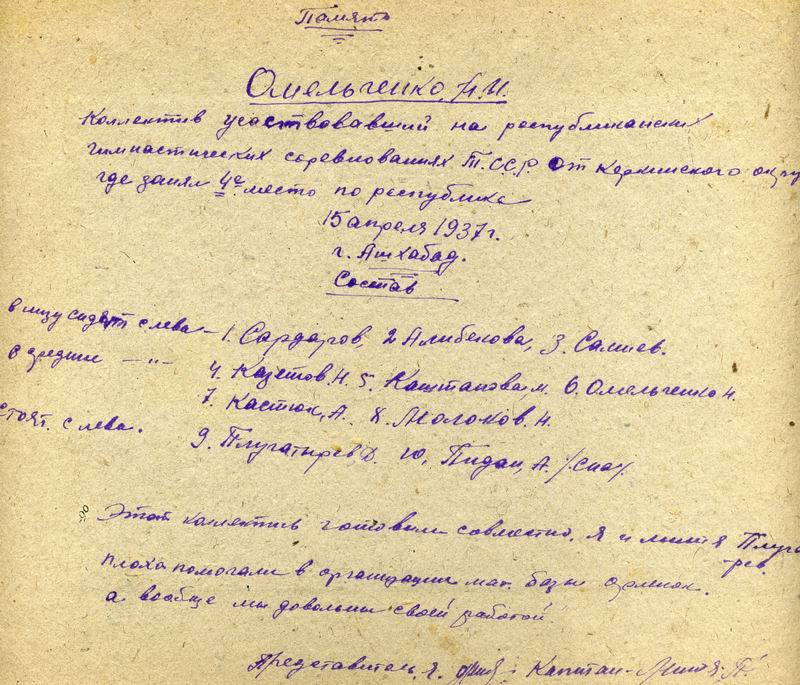 Память
Омельченко, Н.И.
Коллектив усаствовавший на республиканских
гимнастических соревнованиях Т.С.С.Р. от Керкинского окру
где занял 4е место по республике
15 апреля 1937 г.
г. Ашхабад.
Состав
в низу сидят слева – 1. Сардаров, 2 Алибекова, 3. Салиев.
в средине —„— 4. Казетов. Н. 5. Каштанова, м. 6. Омельченко Н.
7. Кастюк, А. 8. Молоков. Н.
стоят. слева. 9. Плугатырев Д. 10, Пидан, А.
Этот коллектив готовили совместно, я и Плуга
рев.
плоха помогали в организации мат. базы
а вообще мы довольны своей работой.
Представитель, Я. Капитан